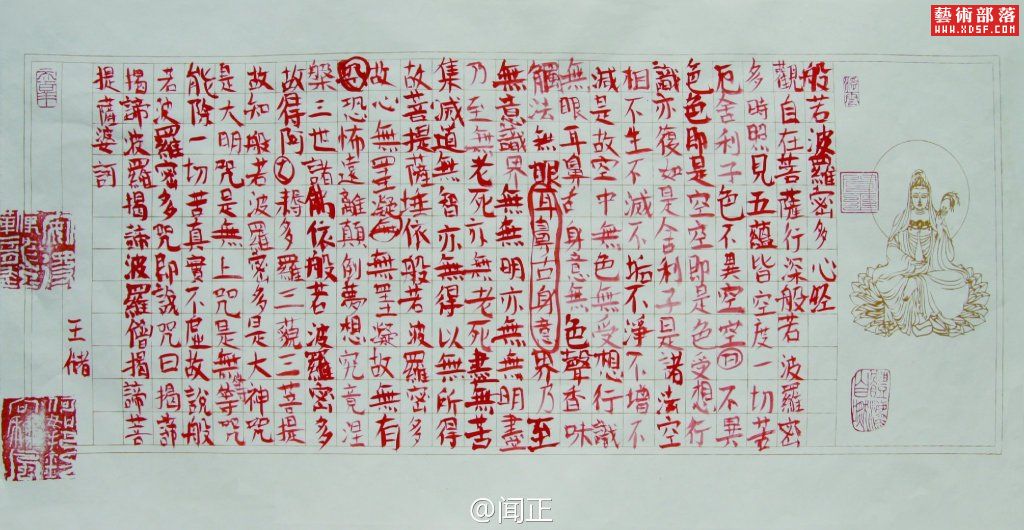 藝術部落
WWW.XDSF.COM
般若波羅密多心经
觀自在菩薩行深般若波羅密
多時照見五蘊皆空度一切苦
厄舍利子色不異空空不異
色色即是空空即是色受想行
識亦復如是舍利子是諸法空
相不生不滅不垢不淨不增不
減是故空中無色無受想行識
無眼耳鼻舌身意無色聲香味
觸法無眼耳鼻舌身意界乃至
無意識界無無明亦無無明盡
乃至無老死亦無老死盡無苦
集滅道無智亦無得以無所得
故菩提薩埵依般若波羅密多
故心無罣凝無罣凝故無有
恐恐怖遠離顛倒夢想究竟涅
槃三世諸佛依般若波羅密多
故得阿耨多羅三藐三菩提
故知般若波羅密多是大神咒
是大明咒是無上咒是無等等咒
能除一切苦真實不虛故說般
若波羅密多咒即說咒曰揭諦
揭諦波羅揭諦波羅僧揭諦菩
提薩婆訶
王储
@闻正